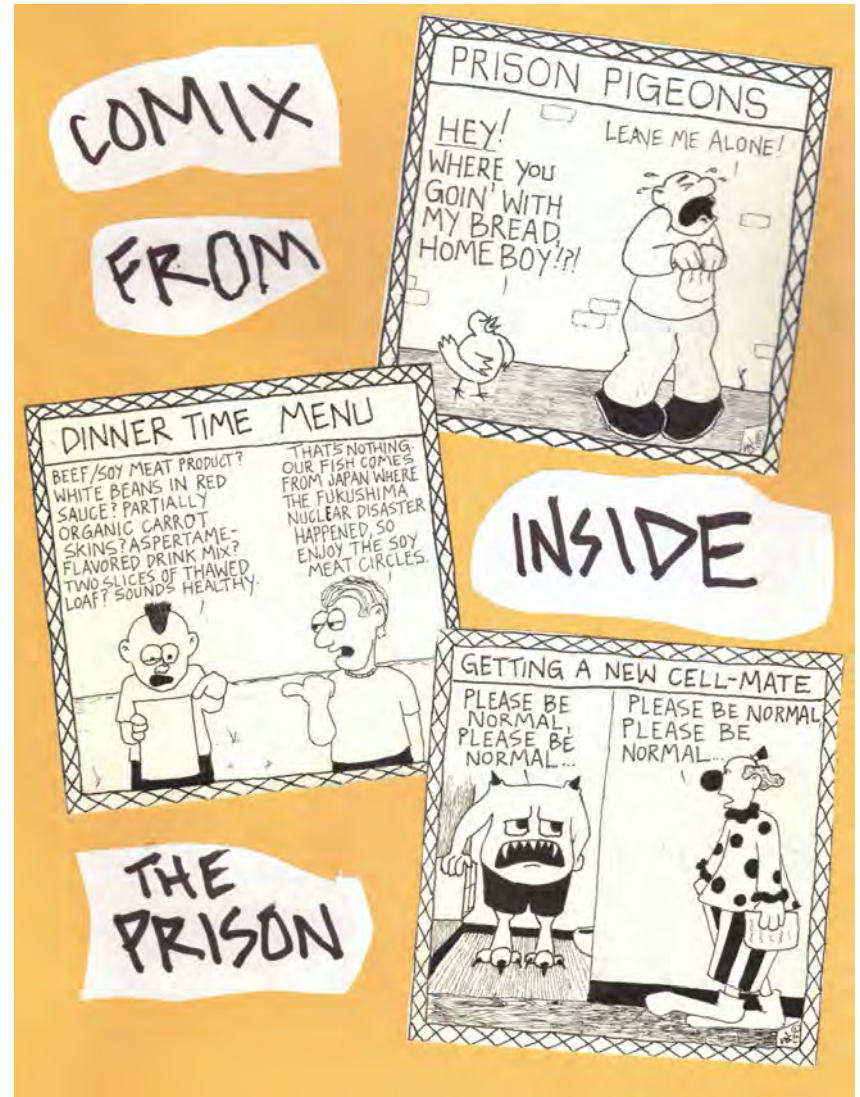 COMIX
FROM
INSIDE
THE
PRISON
PRISON PIGEONS
HEY!
WHERE YOU
GOIN' WITH
MY BREAD,
HOMEBOY!?!
LEAVE ME ALONE!
DINNER TIME MENU
BEEF/SOY MEAT PRODUCT?
WHITE BEANS IN RED
SAUCE? PARTIALLY
ORGANIC CARROT
SKINS? ASPERTAME-
FLAVORED DRINK MIX?
TWO SLICES OF THAWED
LOAF? SOUNDS HEALTHY.
THAT'S NOTHING.
OUR FISH COMES
FROM JAPAN WHERE
THE FUKUSHIMA
NUCLEAR DISASTER
HAPPENED, SO
ENJOY THE SOY
MEAT CIRCLES.
GETTING A NEW CELL-MATE
PLEASE BE
NORMAL,
PLEASE BE
NORMAL...
PLEASE BE NORMAL
PLEASE BE
NORMAL...